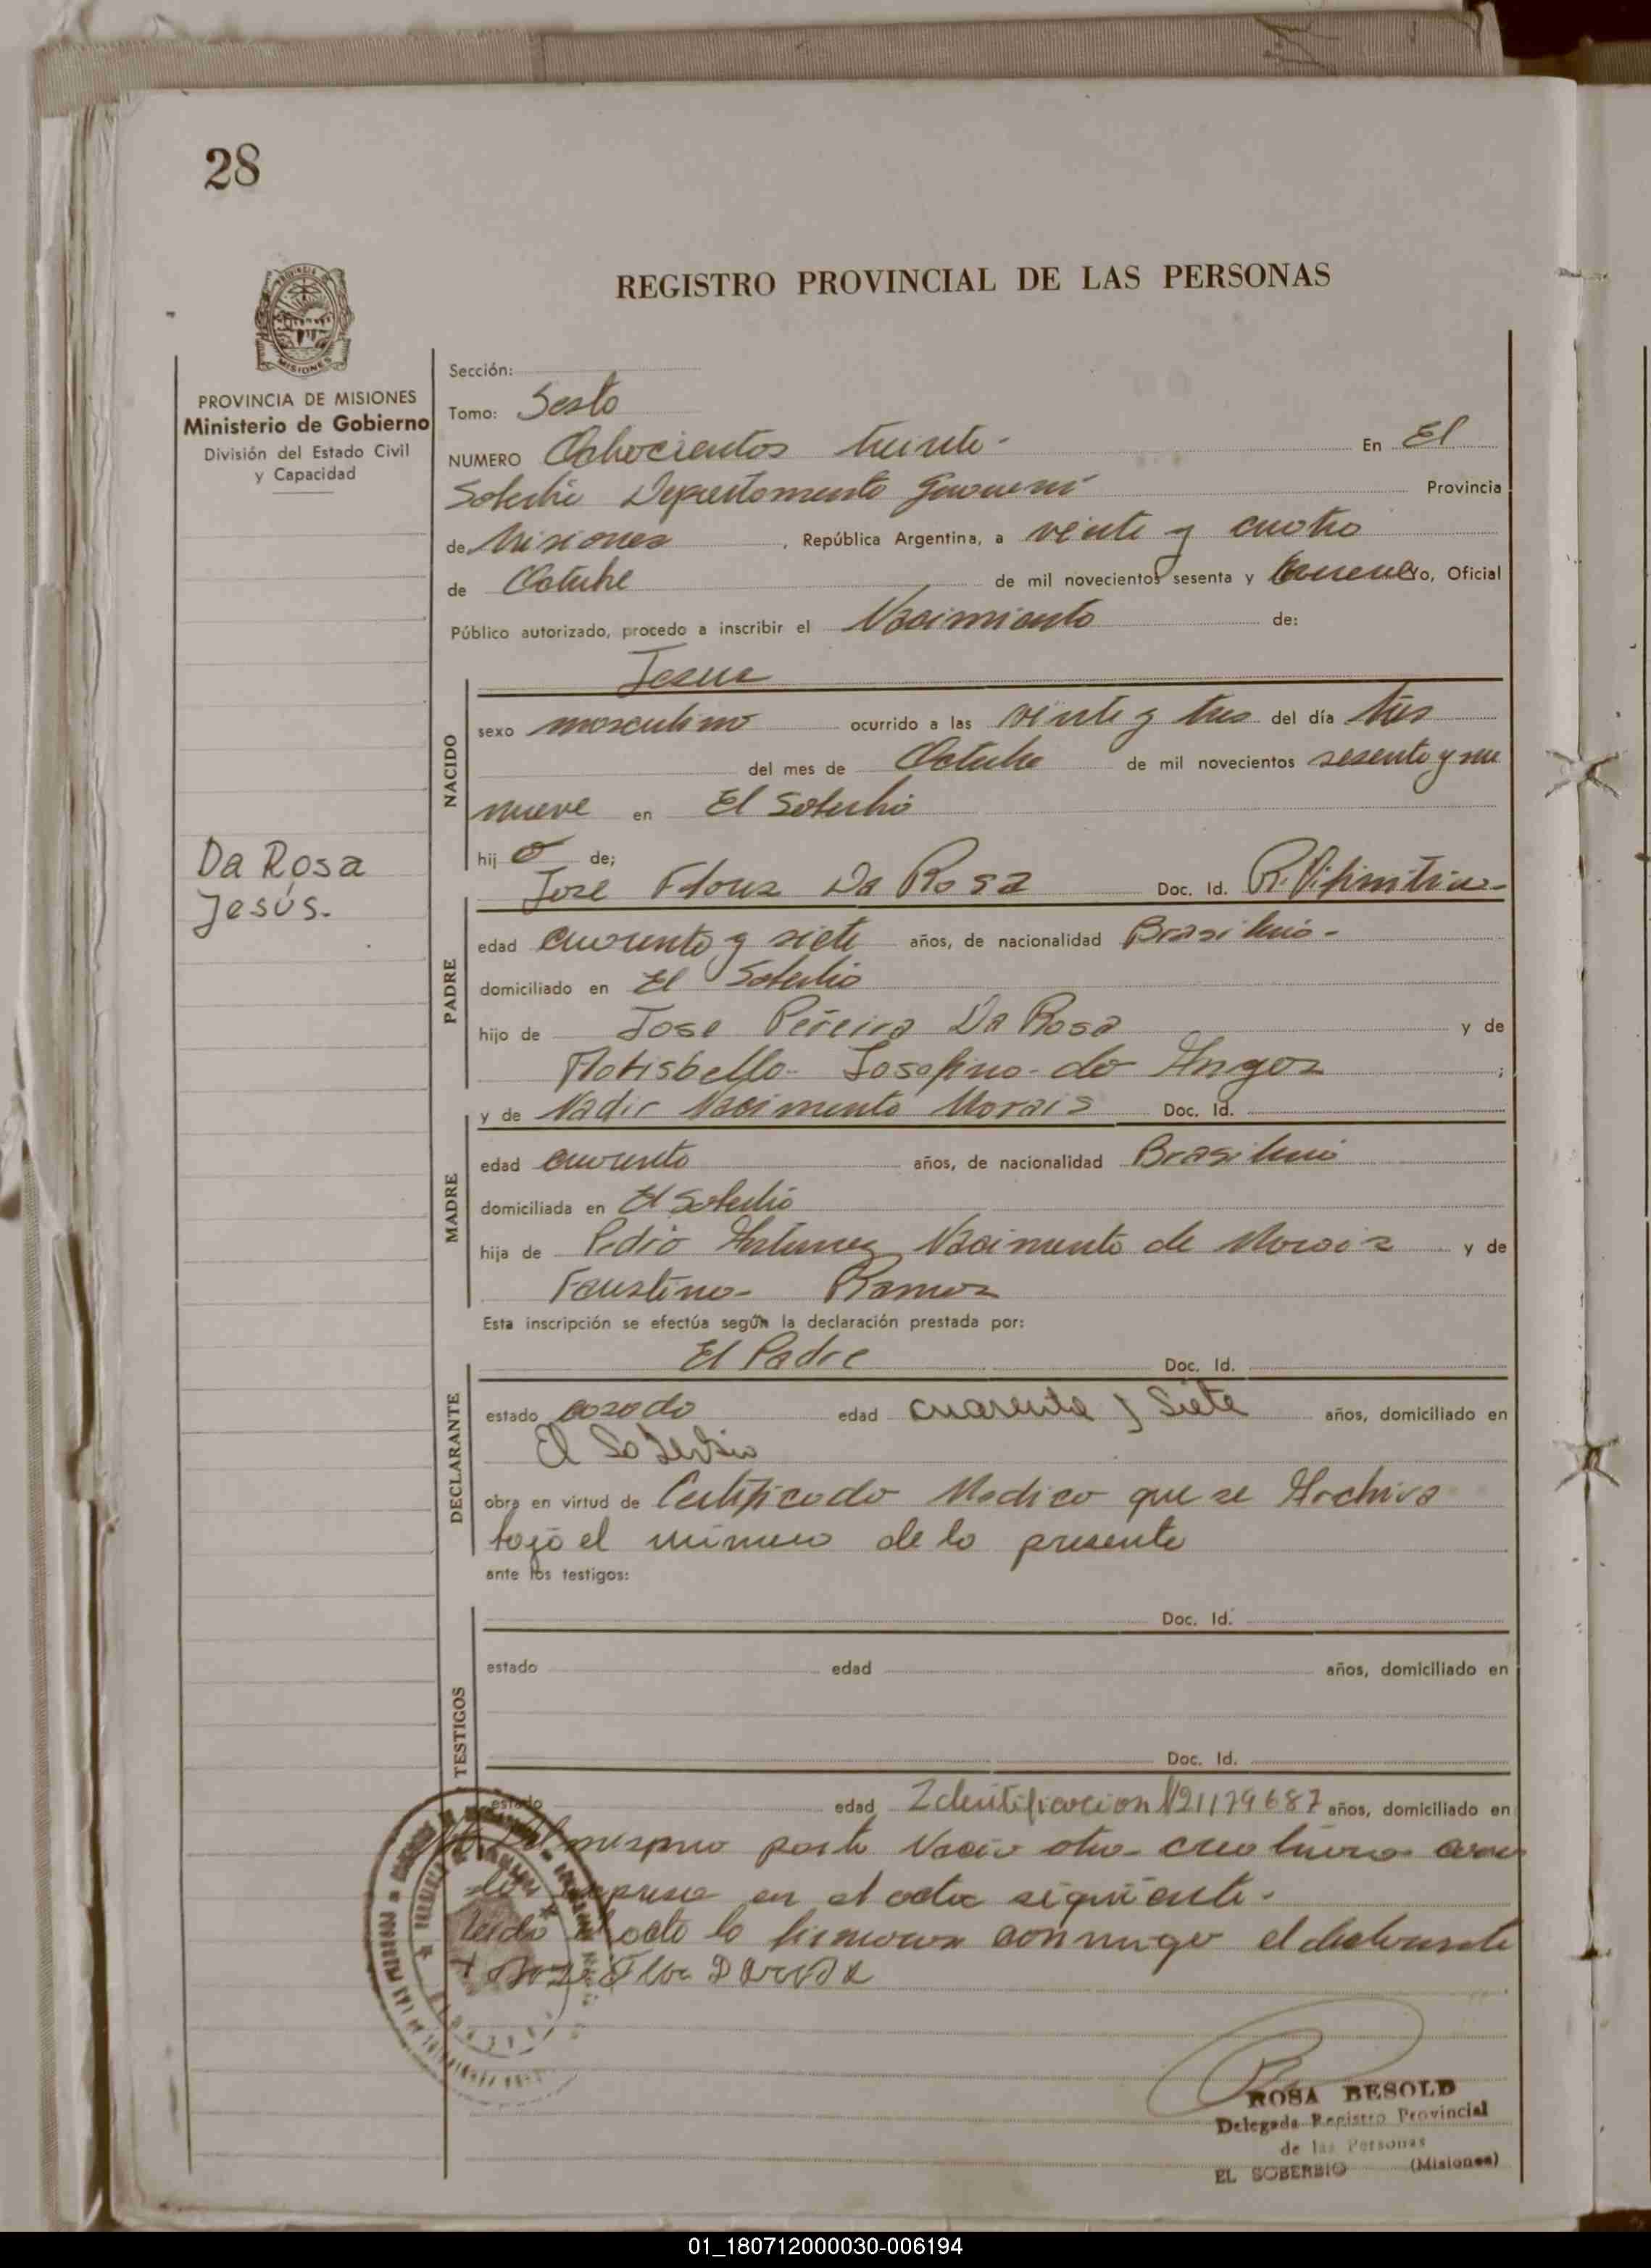 28
REGISTRO PROVINCIAL DE LAS PERSONAS
MISIONES
PROVINCIA DE MISIONES
Ministerio de Gobierno
División del Estado Civil
y Capacidad
Da Rosa
Jesús.
Sección:
Tomo: Sesto
NUMERO Ochocientos treinta- En El
Soberbio Departamento Guarani Provincia
de Misiones, República Argentina, a veinte y cuatro
de Octubre de mil novecientos sesenta y nueve, Oficial
Público autorizado, procedo a inscribir el Nacimiento de:
Jesus
NACIDO
sexo masculino ocurrido a las veinte y tres del día tres
del mes de Octubre de mil novecientos sesenta y nu
nueve en El Soberbio
hij o de;
Jose Flores Da Rosa Doc. Id.
PADRE
edad cuarenta y siete años, de nacionalidad Brasileño-
domiciliado en El Soberbio
hijo de Jose Pereira Da Rosa y de
Josefina do ;
y de Nadir Nacimento Morais Doc. Id.
MADRE
edad cuarenta años, de nacionalidad Brasileña
domiciliada en El Soberbio
hija de Pedro Antunez Nacimento de Morais y de
Faustina- Ramos
Esta inscripción se efectúa según la declaración prestada por:
El Padre Doc. Id.
DECLARANTE
estado casado edad cuarenta y Siete años, domiciliado en
El Soberbio
obra en virtud de Certificado Medico que se Archiva
bajo el numero de la presente
ante los testigos:
TESTIGOS
Doc. Id.
estado edad años, domiciliado en
Doc. Id.
estado edad Identificacion N21179687 años, domiciliado en
mismo parto Nacio otra creatura
en el acta siguiente-
Leida el acta la firmaron conmigo el declarante
ROSA BESOLD
Delegada Registro Provincial
de las Personas
EL SOBERBIO (Misiones)
01_180712000030-006194